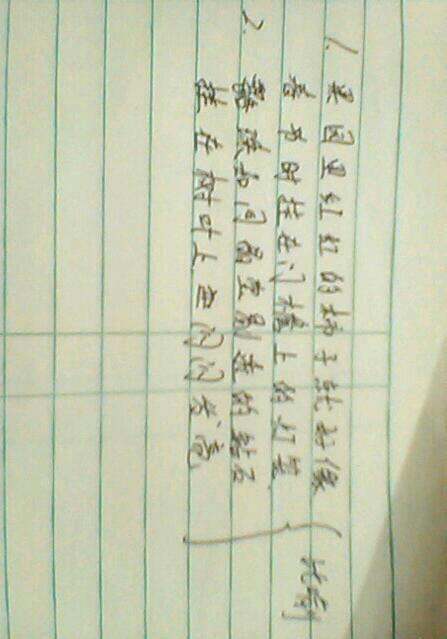 1. 果园里红红的柿子就好像
春节时挂在门檐上的灯笼
2. 露珠如同晶莹剔透的钻石
挂在树叶上 闪闪发亮
比喻